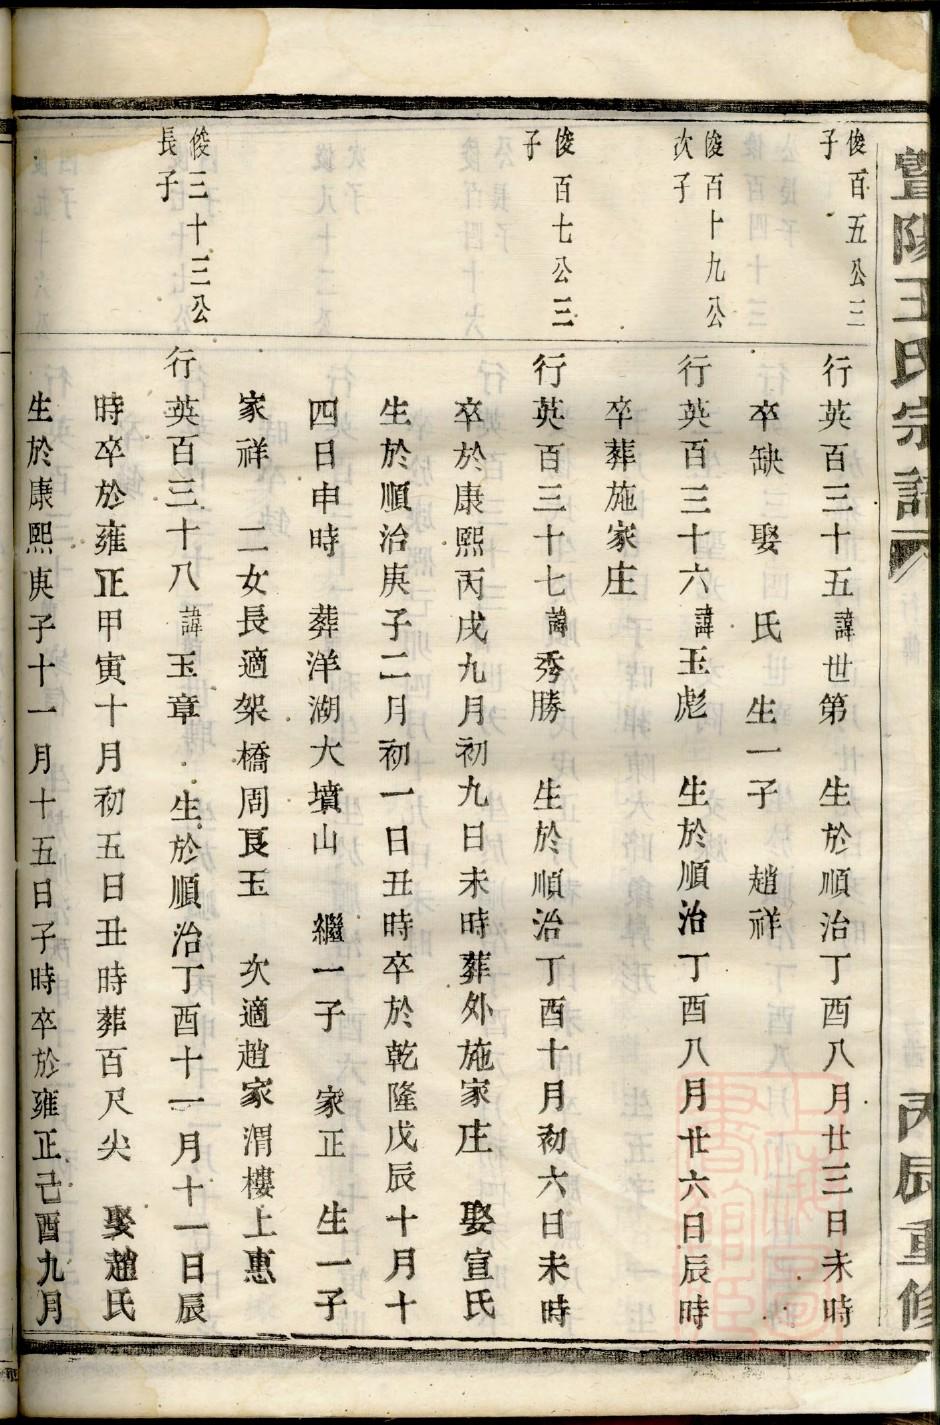 暨陽王氏宗譜
丙辰重修
俊百五公三
子
行英百三十五諱世第 生於順治丁酉八月廿三日未時
卒缺 娶 氏 生一子 趙祥
俊百十九公
次子
行英百三十六諱玉彪 生於順治丁酉八月廿六日辰時
卒葬施家庄
俊百七公三
子
行英百三十七諱秀勝 生於順治丁酉十月初六日未時
卒於康熙丙戌九月初九日未時葬外施家庄 娶宣氏
生於順治庚子二月初一日丑時卒於乾隆戊辰十月十
四日申時 葬洋湖大墳山 繼一子 家正 生一子
家祥 二女長適架橋周艮玉 次適趙家渭樓上惠
俊三十三公
長子
行英百三十八諱玉章 生於順治丁酉十一月十一日辰
時卒於雍正甲寅十月初五日丑時葬百尺尖 娶趙氏
生於康熙庚子十一月十五日子時卒於雍正己酉九月